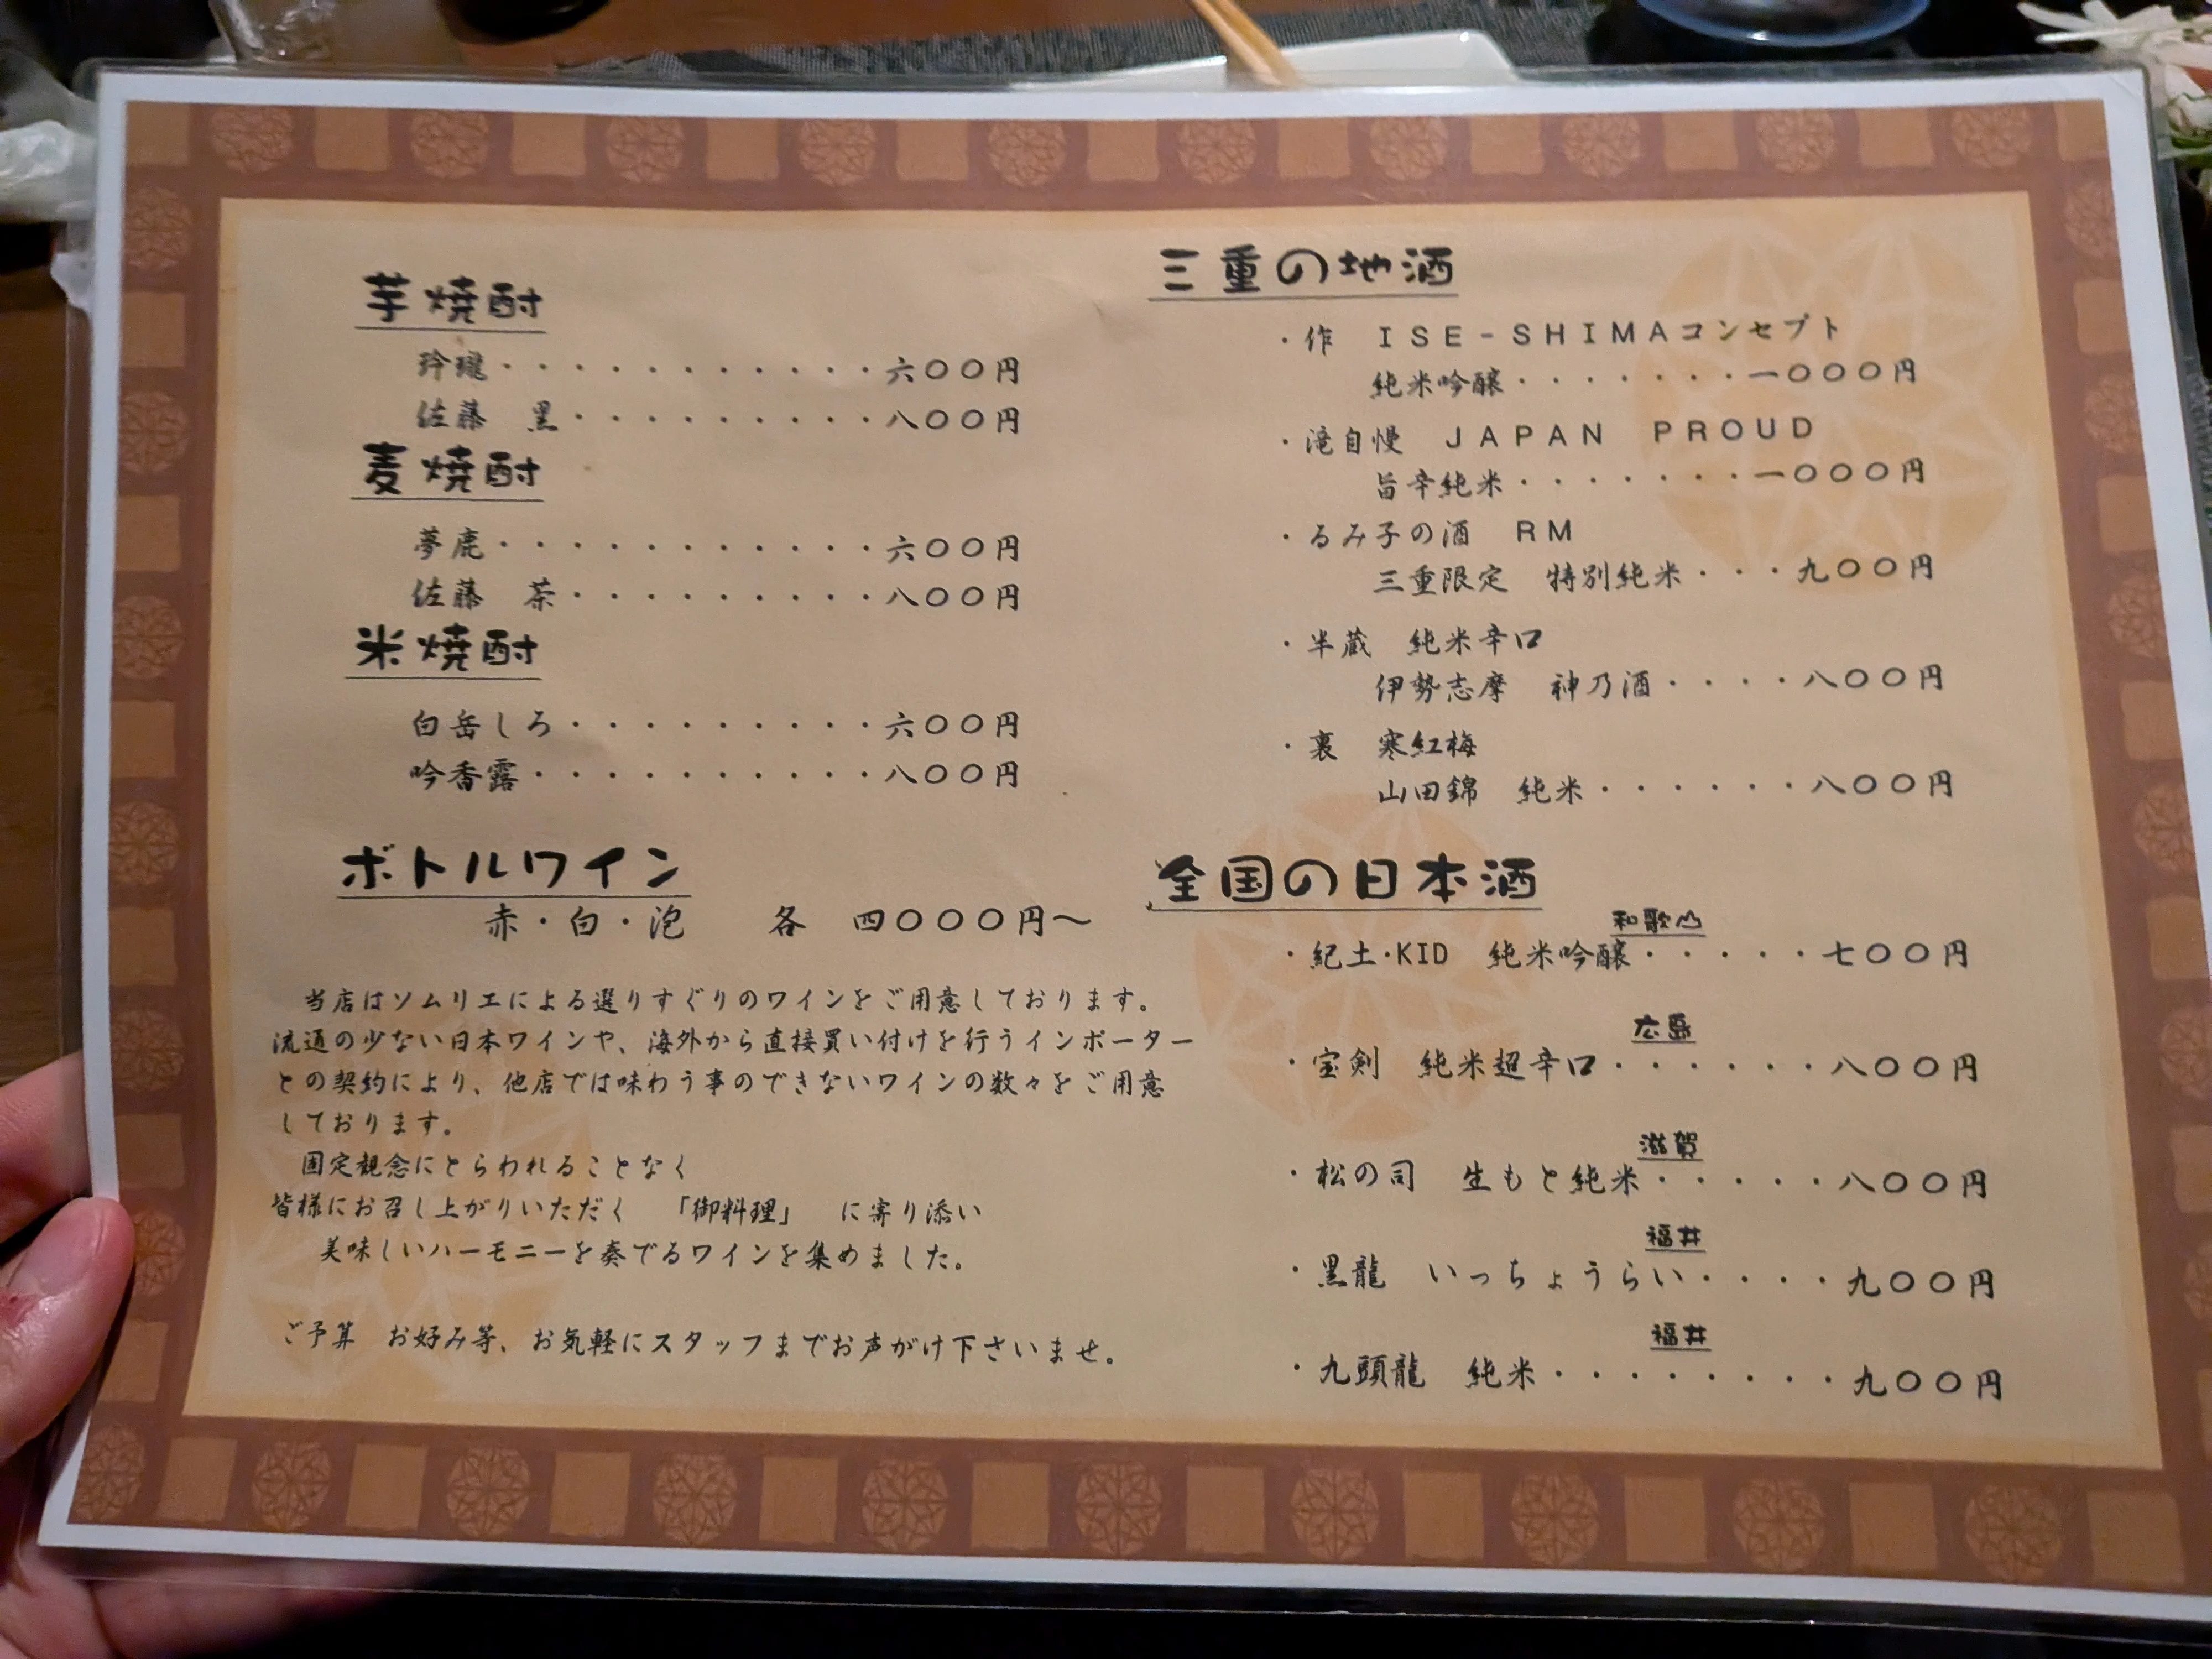 芋焼酎
玲瓏・・・・・・・・・・・六〇〇円
佐藤　黒・・・・・・・・・八〇〇円
麦焼酎
夢鹿・・・・・・・・・・・六〇〇円
佐藤　茶・・・・・・・・・八〇〇円
米焼酎
白岳しろ・・・・・・・・・六〇〇円
吟香露・・・・・・・・・・八〇〇円
ボトルワイン
赤・白・泡　　各　四〇〇〇円～
当店はソムリエによる選りすぐりのワインをご用意しております。
流通の少ない日本ワインや、海外から直接買い付けを行うインポーター
との契約により、他店では味わう事のできないワインの数々をご用意
しております。
固定観念にとらわれることなく
皆様にお召し上がりいただく　「御料理」　に寄り添い
美味しいハーモニーを奏でるワインを集めました。
ご予算　お好み等、お気軽にスタッフまでお声がけ下さいませ。
三重の地酒
・作　ＩＳＥ－ＳＨＩＭＡコンセプト
純米吟醸・・・・・・・一〇〇〇円
・滝自慢　ＪＡＰＡＮ　ＰＲＯＵＤ
旨辛純米・・・・・・・一〇〇〇円
・るみ子の酒　ＲＭ
三重限定　特別純米・・・九〇〇円
・半蔵　純米辛口
伊勢志摩　神乃酒・・・・八〇〇円
・裏　寒紅梅
山田錦　純米・・・・・・八〇〇円
全国の日本酒
和歌山
・紀土・KID　純米吟醸・・・・・七〇〇円
広島
・宝剣　純米超辛口・・・・・・八〇〇円
滋賀
・松の司　生もと純米・・・・・八〇〇円
福井
・黒龍　いっちょうらい・・・・九〇〇円
福井
・九頭龍　純米・・・・・・・・九〇〇円